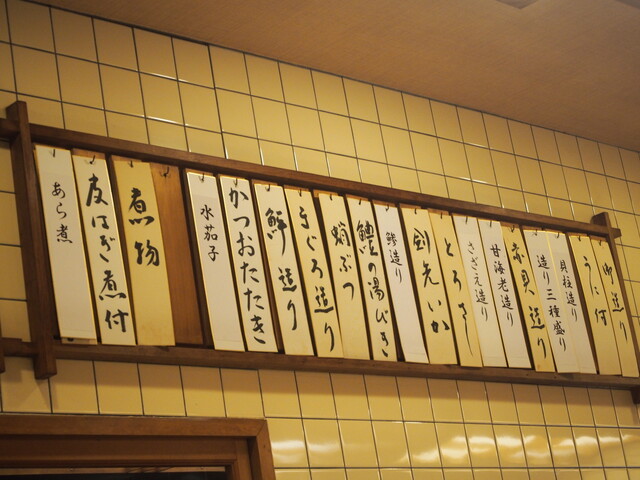 造り
うに付
貝柱造り
造り三種盛り
赤貝造り
甘海老造り
さざえ造り
とろさ
剣先いか
鯵造り
鱧の湯びき
蛸ぶつ
まぐろ造り
鮮造り
かつおたたき
水茄子
煮物
皮はぎ煮付
あら煮